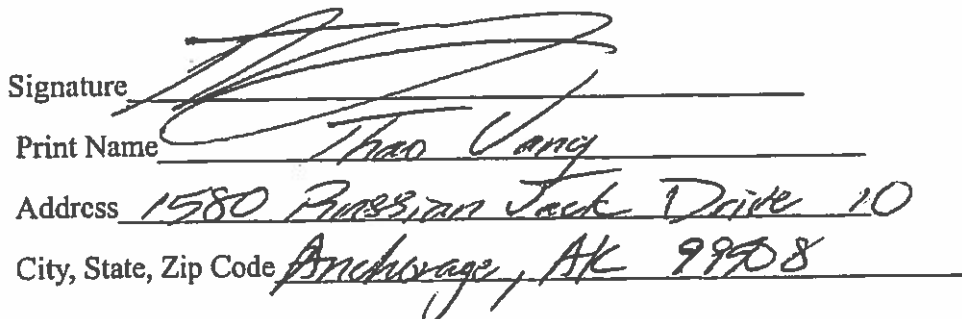 Signature
Print Name Thao Vang
Address 1580 Russian Jack Drive 10
City, State, Zip Code Anchorage, AK 99508